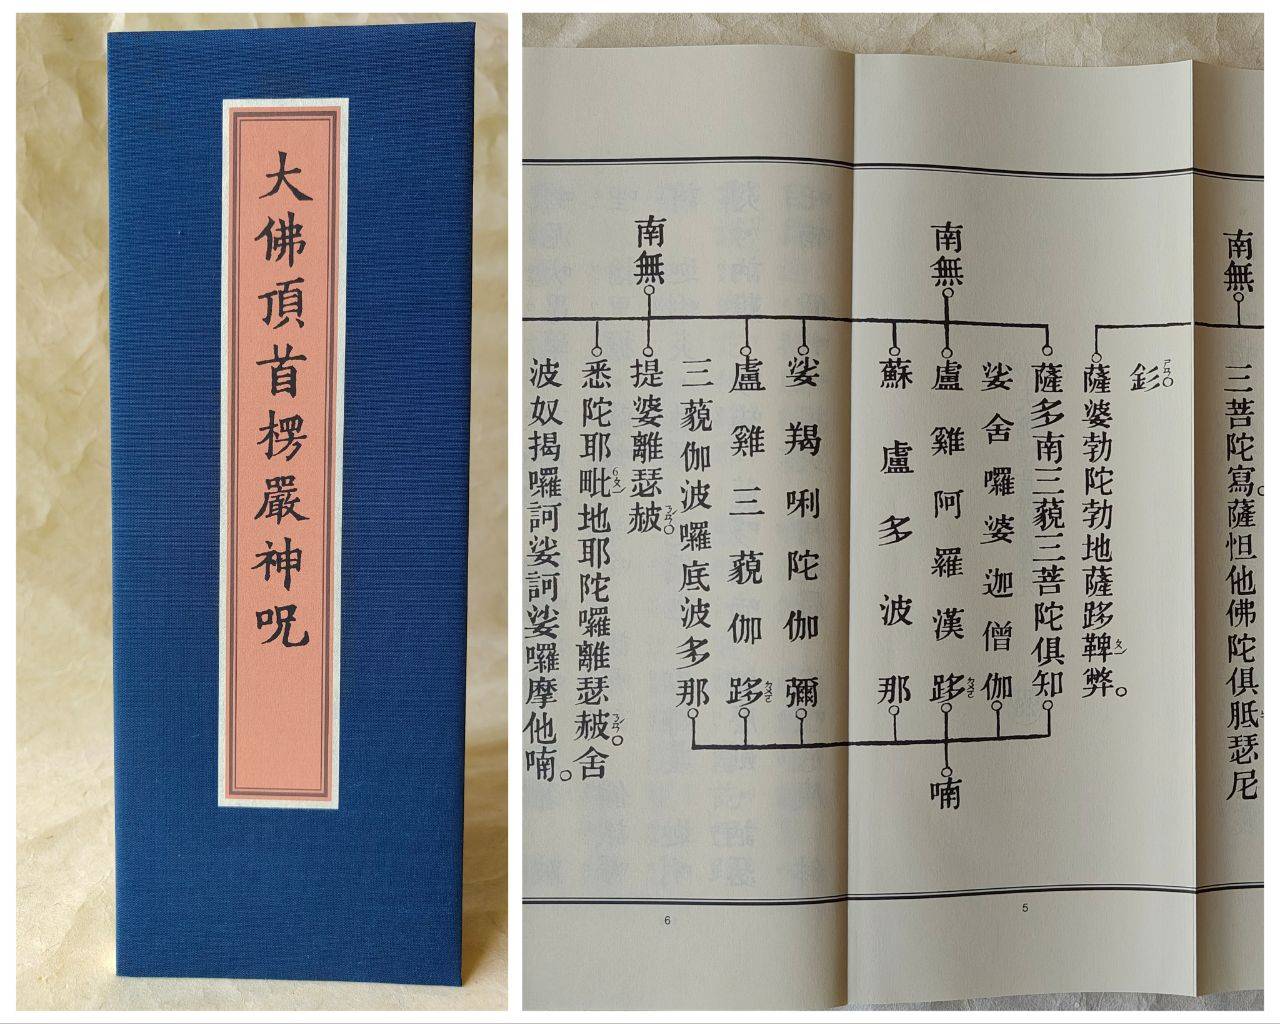 大佛頂首楞嚴神呪
南無
三菩陀寫。薩怛他佛陀俱胝瑟尼
釤
南無
薩婆勃陀勃地薩跢鞞弊。
薩多南三藐三菩陀俱知
娑舍囉婆迦僧伽
盧雞阿羅漢跢
蘇盧多波那
喃
南無
娑羯唎陀伽彌
盧雞三藐伽跢
三藐伽波囉底波多那
提婆離瑟赧。
悉陀耶毗地耶陀囉離瑟赧。舍
波奴揭囉訶娑訶娑囉摩他喃。
5
6